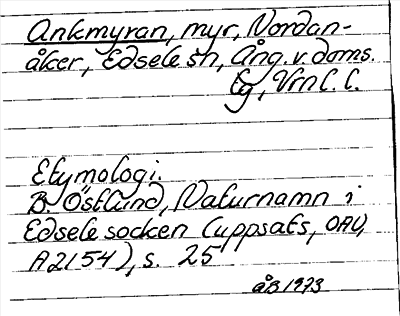 Ankmyran, myr, Nordan-
åker, Edsele sn, Ång. v. doms.
lg, Vrn l. l.
Etymologi.
B. Östlund, Naturnamn i
Edsele socken (uppsats, OAU,
A2154), s. 25
åB 1973